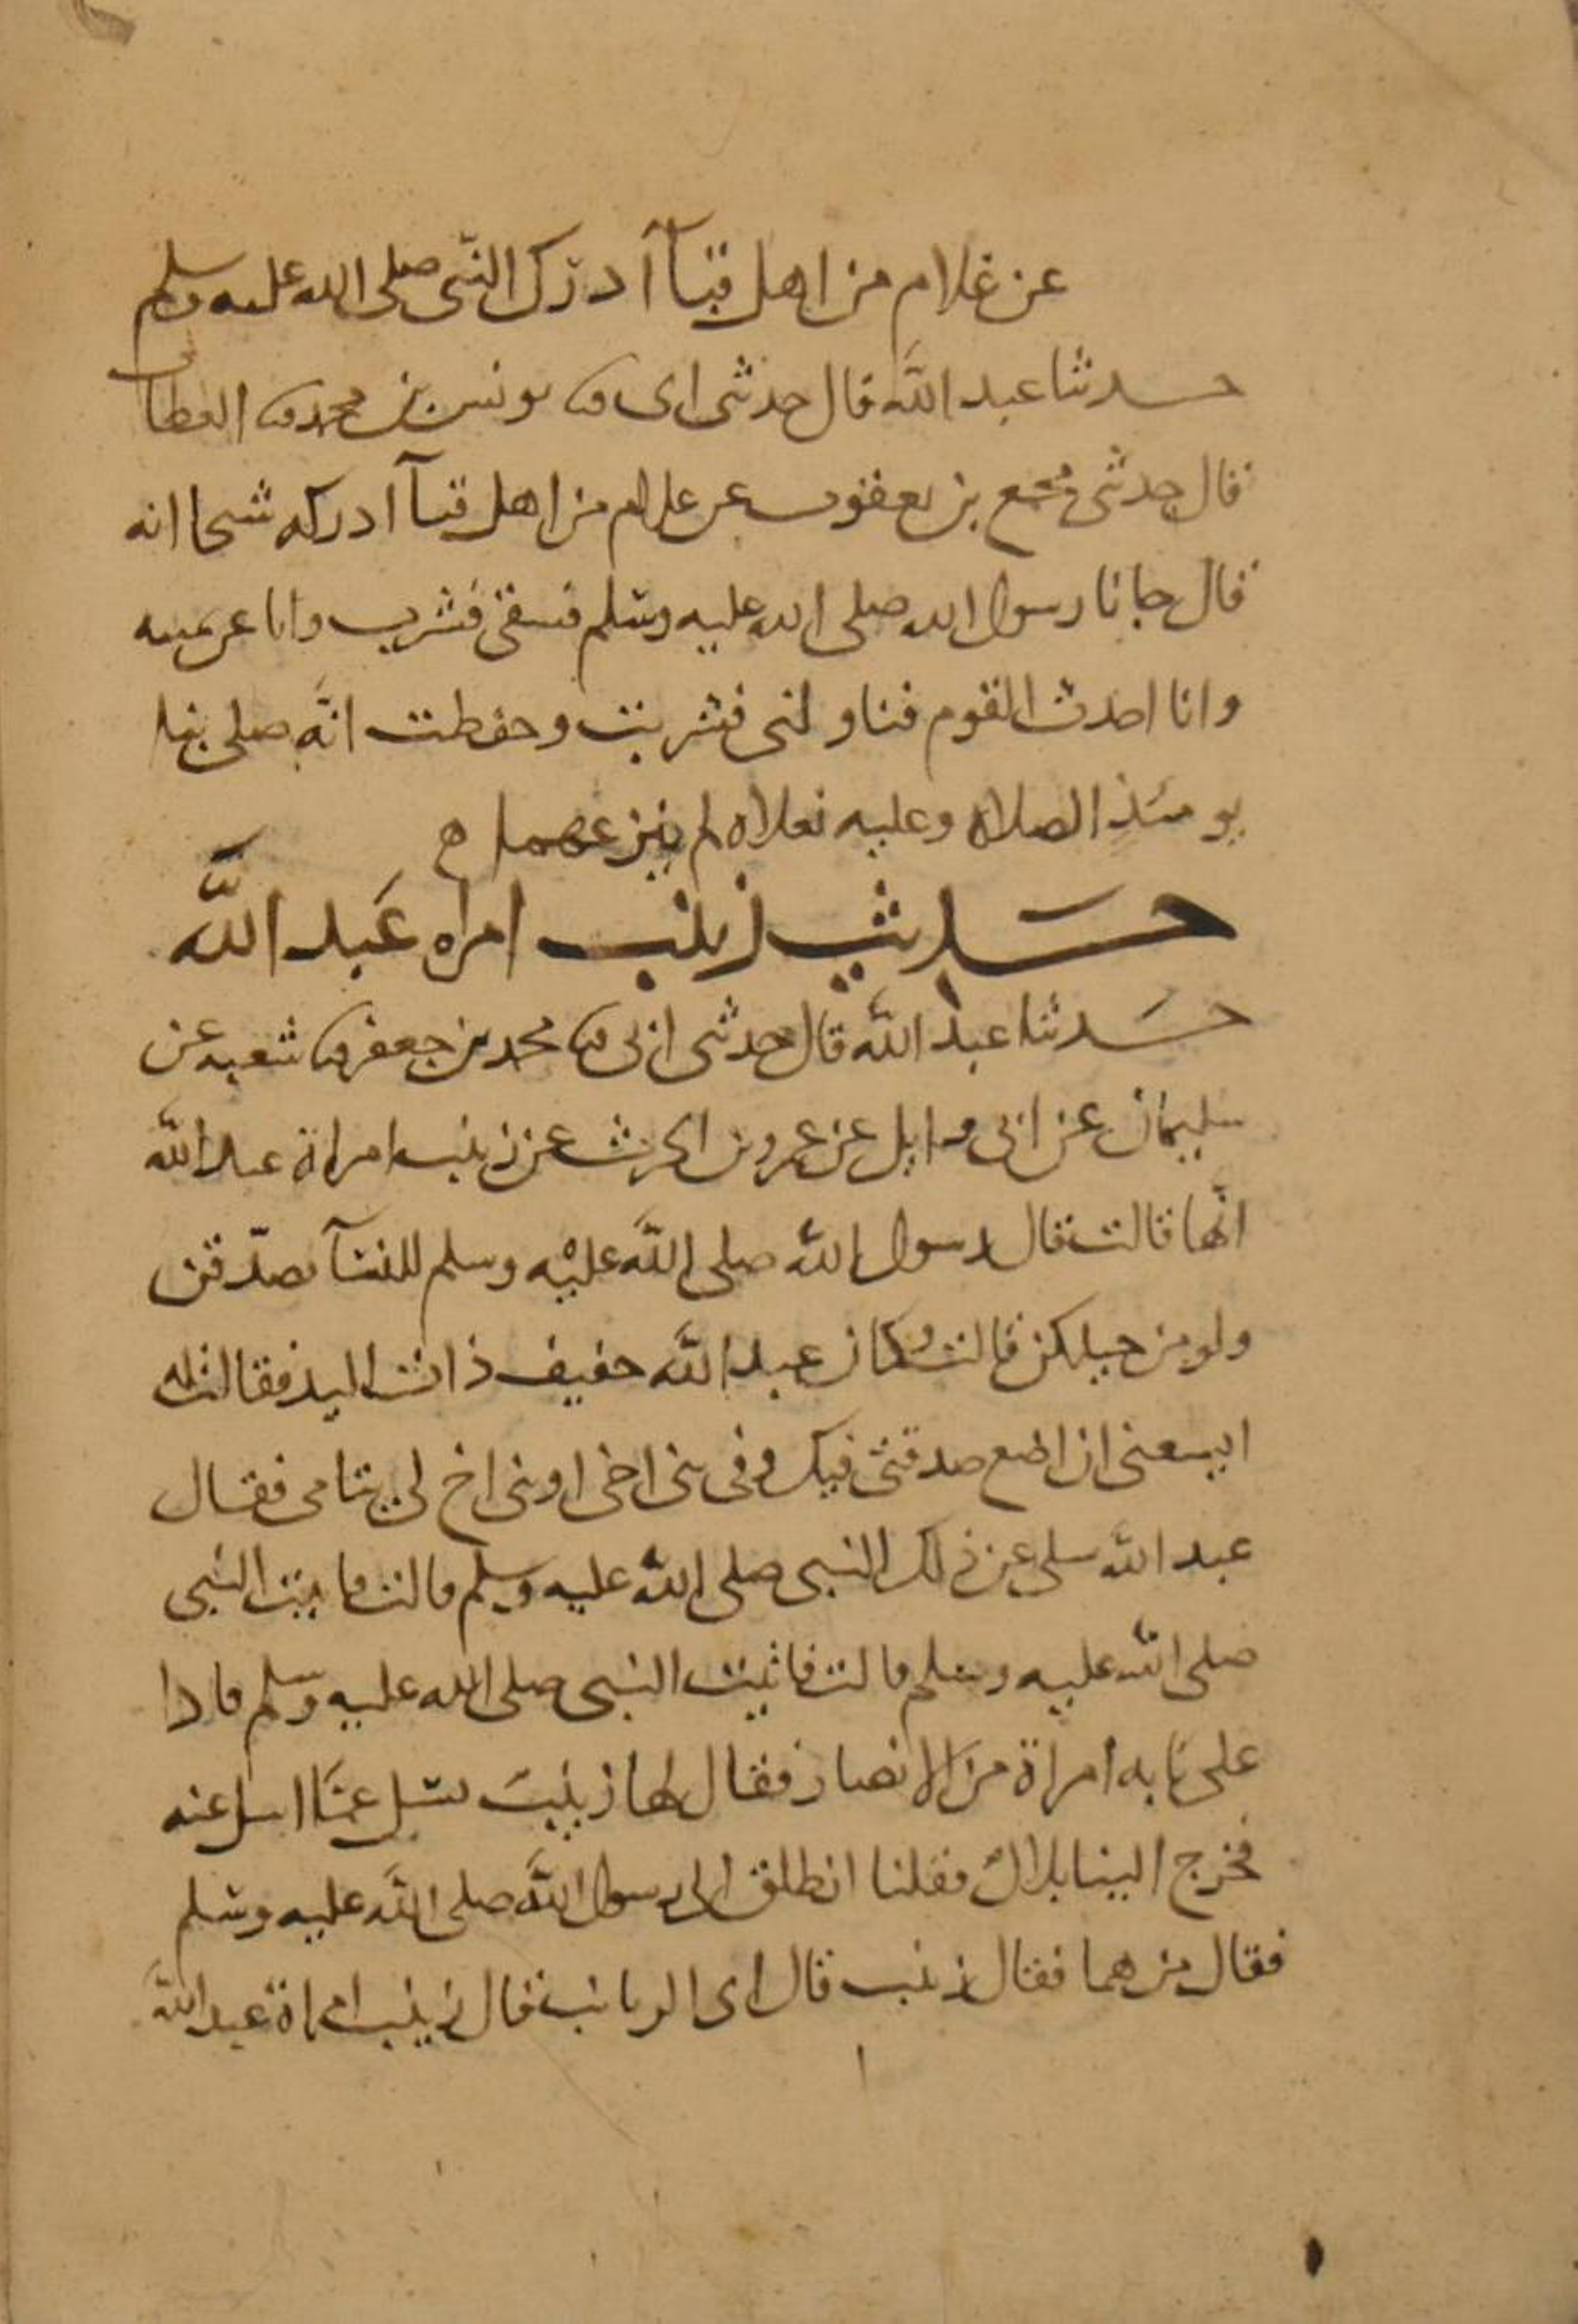 عن غلام من اهل قبآ ادرك النبى صلى الله عليه وسلم
حدثنا عبد الله قال حدثنى ابى ثنا يونس بن محمد ثنا العطاف
قال حدثنى مجمع بن يعقوب عن غلام من اهل قبآ ادركه شيخا انه
قال جانا رسول الله صلى الله عليه وسلم فسقى فشرب وانا عن يمينه
وانا احدث القوم فناولنى فشربت وحفظت انه صلى بنا
يومئذ الصلاه وعليه نعلاه لم ينزعهما ه
حديث زينب امراه عبد الله
حدثنا عبد الله قال حدثنى ابى ثنا محمد بن جعفر ثنا شعبه عن
سليمان عن ابى وايل عن عمرو بن الحرث عن زينب امراة عبد الله
انها قالت قال رسول الله صلى الله عليه وسلم للنسآ تصدقن
ولو من حليكن قالت وكان عبد الله خفيف ذات اليد فقالت له
ايسعنى ان اضع صدقتى فيك وفى بنى اخى او بنى اخ لى يتامى فقال
عبد الله سلى عن ذلك النبى صلى الله عليه وسلم قالت فاتيت النبى
صلى الله عليه وسلم قالت فاتيت النبى صلى الله عليه وسلم فاذا
على بابه امراة من الانصار فقال لها زينب تسل عما اسل عنه
فخرج الينا بلال فقلنا انطلق الى رسول الله صلى الله عليه وسلم
فقال من هما فقال زينب قال اى الزيانب قال زينب امراة عبد الله